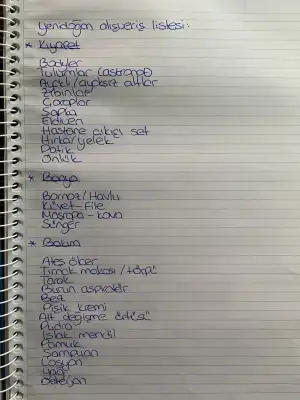 Yenidoğan alışveriş listesi:
* Kıyafet
Bodyler
Tulumlar (astronot)
Ayaklı/ayaksız altlar
Zıbınlar
Çoraplar
Şapka
Eldiven
Hastane çıkışı set
Hırka/yelek
Patik
Önlük
* Banyo
Bornoz/Havlu
Küvet-File
Maşrapa-kova
Sünger
* Bakım
Ateş ölçer
Tırnak makası/törpü
Tarak
Burun aspiratör
Bez
Pişik kremi
Alt değişme örtüsü
Pudra
Islak mendil
Pamuk
Şampuan
Losyon
Yağ
Deterjan